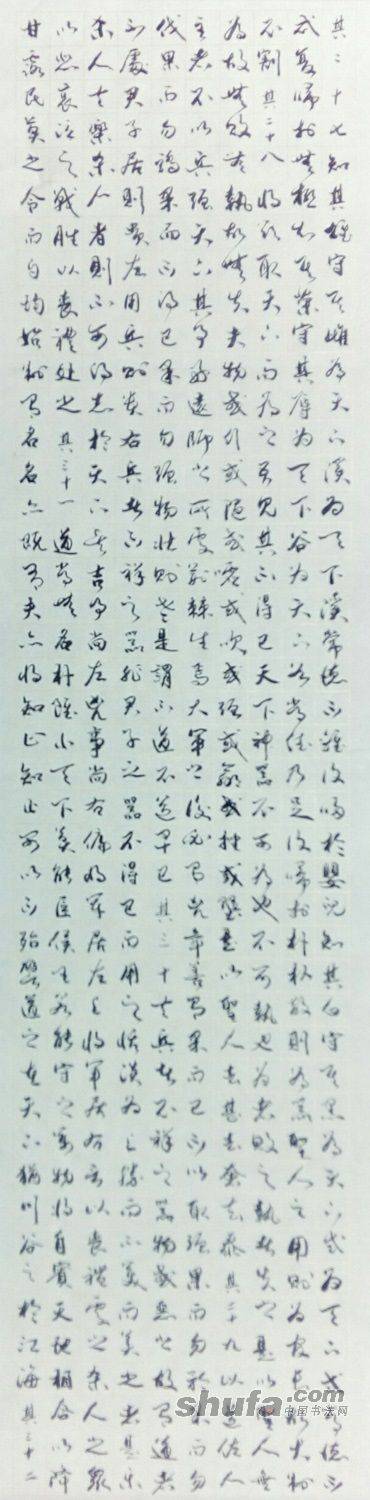 其二十七知其雄守其雌為天下溪為天下溪常德不離復歸於嬰兒知其白守其黑為天下式為天下式常德不
忒復歸於無極知其榮守其辱為天下谷為天下谷常德乃足復歸於朴朴散則為器聖人之用則為官長故大制
不割其二十八將欲取天下而為之吾見其不得已天下神器不可為也不可執也為者敗之執者失之是以聖人無
為故無敗無執故無失夫物或行或隨或噓或吹或強或羸或挫或隳是以聖人去甚去奢去泰其二十九以道佐人
主者不以兵強天下其事好還師之所處荊棘生焉大軍之後必有凶年善有果而已不以取強果而勿矜果而勿
伐果而勿驕果而不得已果而勿強物壯則老是謂不道不道早已其三十夫兵者不祥之器物或惡之故有道者
不處君子居則貴左用兵則貴右兵者不祥之器非君子之器不得已而用之恬淡為上勝而不美而美之者是樂
殺人夫樂殺人者則不可得志於天下矣吉事尚左凶事尚右偏將軍居左上將軍居右言以喪禮處之殺人之眾
以悲哀泣之戰勝以喪禮處之其三十一道常無名朴雖小天下莫能臣侯王若能守之萬物將自賓天地相合以降
甘露民莫之令而自均始制有名名亦既有夫亦將知止知止可以不殆譬道之在天下猶川谷之於江海其三十二
shufa.com
中国书法网